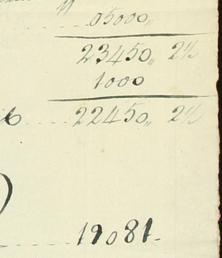 05000,,
23450,, 2½
1000
22450,, 2½
19081.